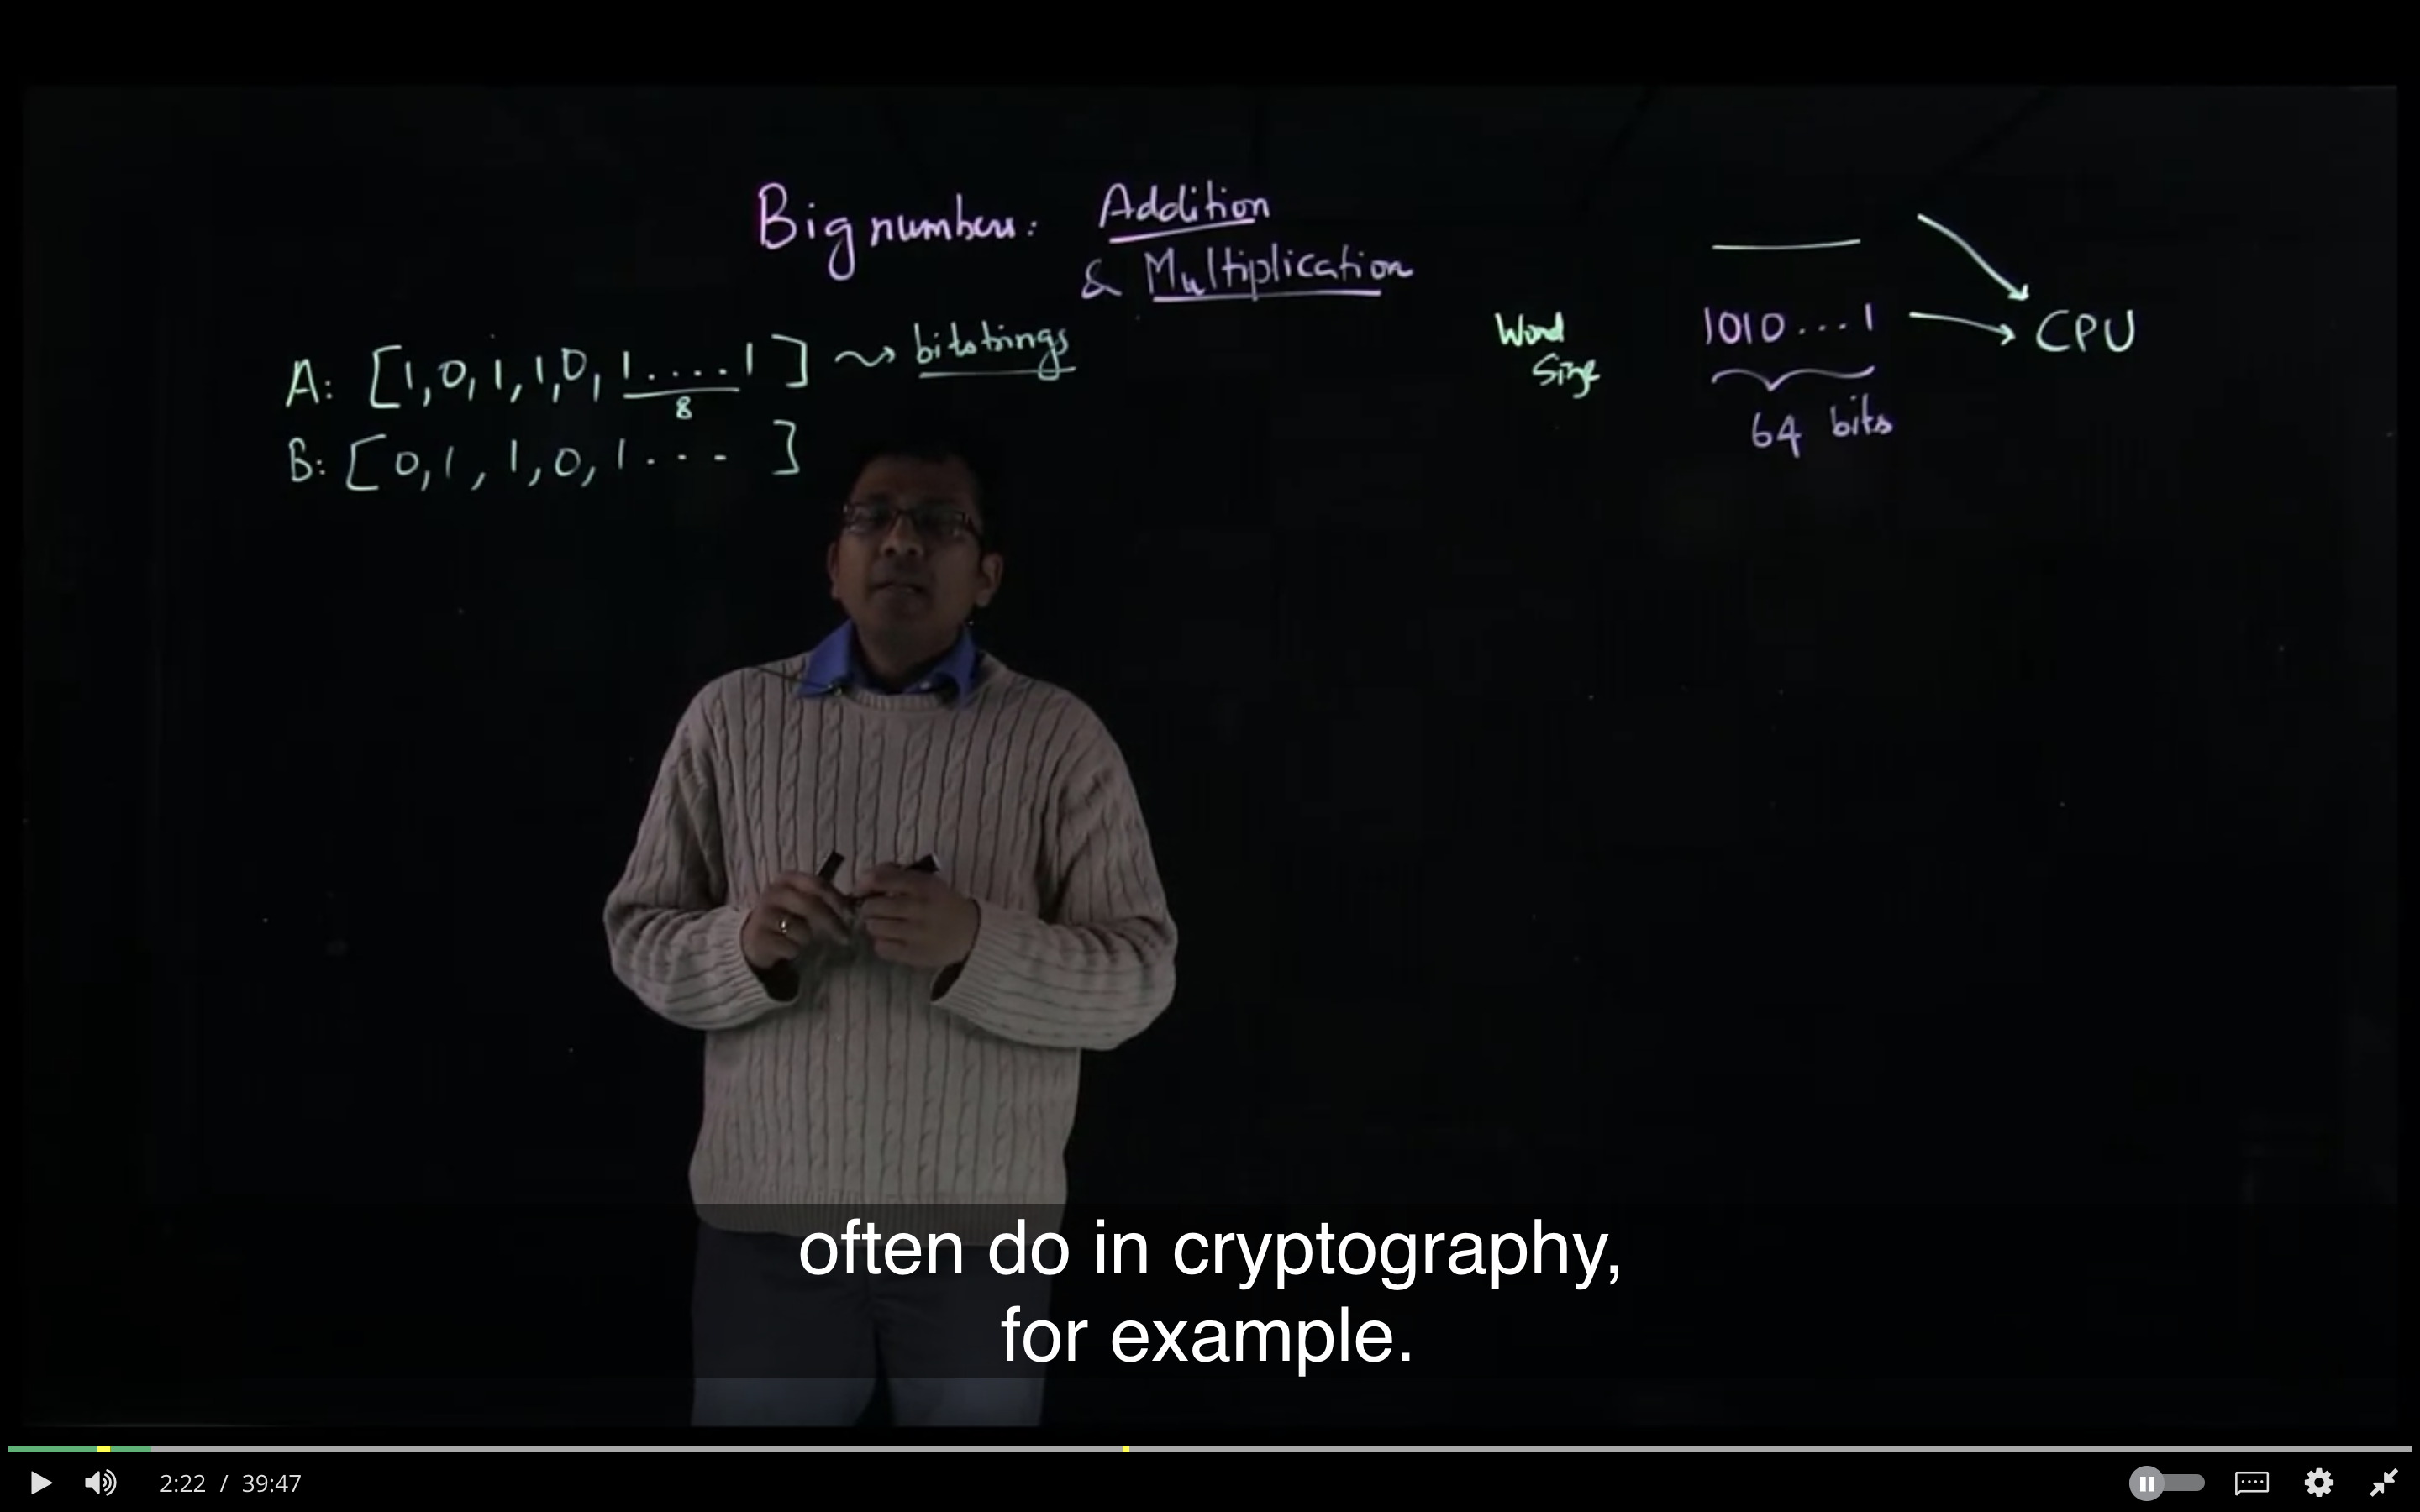 Big numbers: Addition
& Multiplication
A: [1,0,1,1,0,1....1] bitstrings
8
B: [0,1,1,0,1... ]
Word
Size
1010...1
CPU
64 bits
often do in cryptography,
for example.
2:22 / 39:47